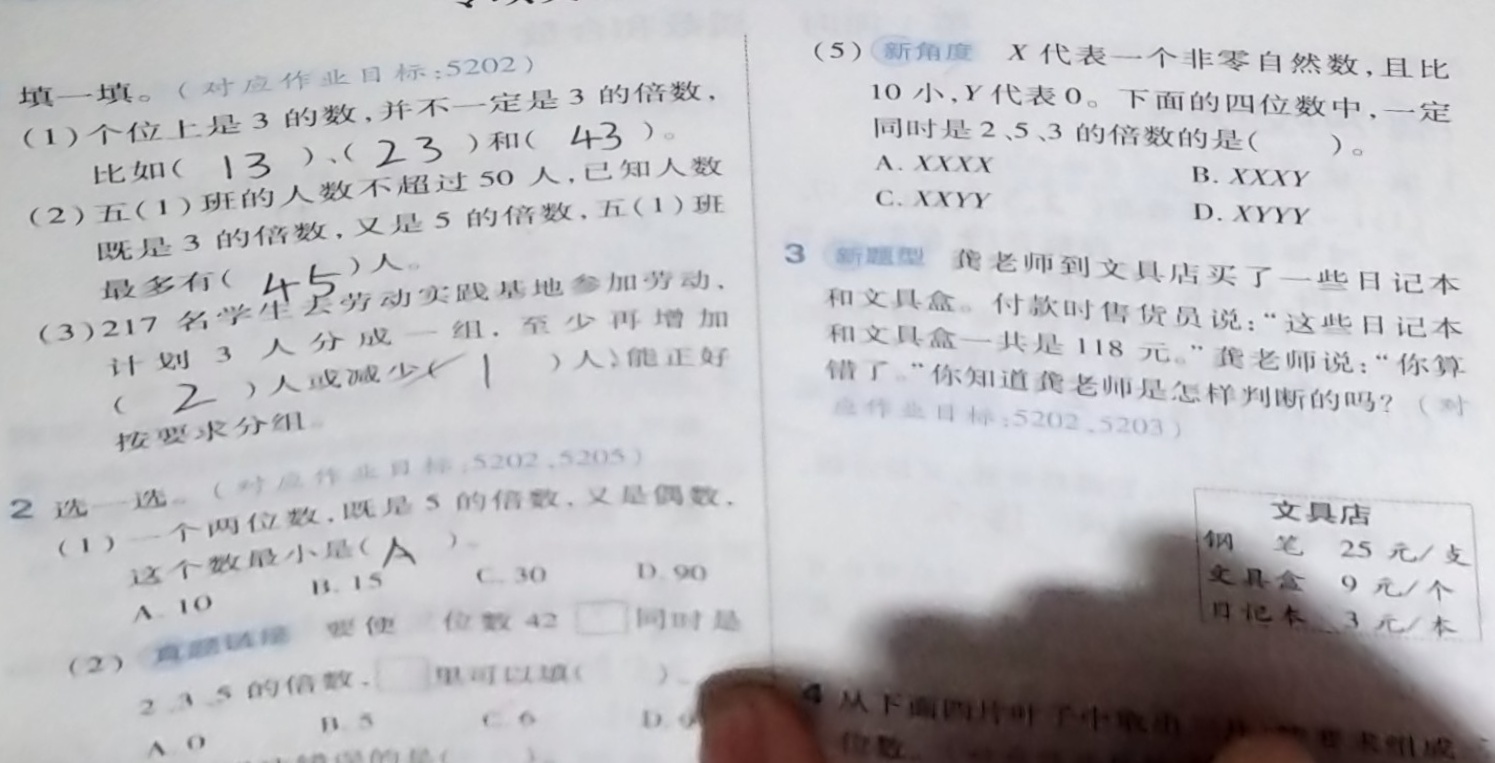 填一填。(对应作业目标:5202)
(1)个位上是3的数,并不一定是3的倍数,
比如( 13 )、( 23 )和( 43 )。
(2)五(1)班的人数不超过50人,已知人数
既是3的倍数,又是5的倍数,五(1)班
最多有( 45 )人。
(3)217名学生去劳动实践基地参加劳动,
计划3人分成一组,至少再增加
( 2 )人或减少( 1 )人,能正好
按要求分组。
2 选一选。(对应作业目标:5202、5205)
(1)一个两位数,既是5的倍数,又是偶数,
这个数最小是( A )。
A. 10 B. 15 C. 30 D. 90
(2) 真题链接 要使 位数42□同时是
2、3、5的倍数,□里可以填( )。
A. 0 B. 5 C. 6 D.
的是( )。
(5) 新角度 X代表一个非零自然数,且比
10小,Y代表0。下面的四位数中,一定
同时是2、5、3的倍数的是( )。
A. XXXX B. XXXY
C. XXYY D. XYYY
3 新题型 龚老师到文具店买了一些日记本
和文具盒。付款时售货员说:“这些日记本
和文具盒一共是118元。”龚老师说:“你算
错了。”你知道龚老师是怎样判断的吗?(对
应作业目标:5202、5203)
文具店
钢笔 25元/支
文具盒 9元/个
日记本 3元/本
4 从下面四片叶子中取出 片,按要求组成
位数。